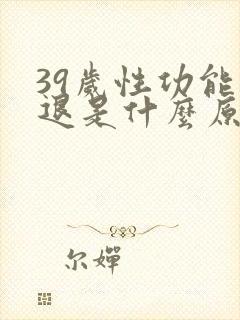 39歲性功能
退是什麼原
尔嬋